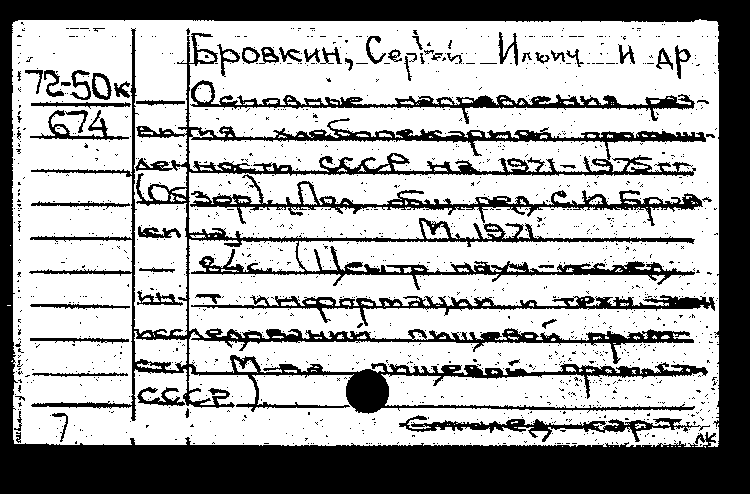 Бровкин, Сергей Ильич и др
72-50к
Основные направления раз-
674
вития хлебопекарной промыш-
ленности СССР на 1971-1975 гг.
(Обзор). Под общ. ред. С.И. Бров-
кина, М., 1971.
с. (Центр. науч.-исслед.
ин-т информации и техн.-экон
исследований пищевой пром-
сти М-ва пищевой пром-сти
СССР).
7
карт.
ЛК